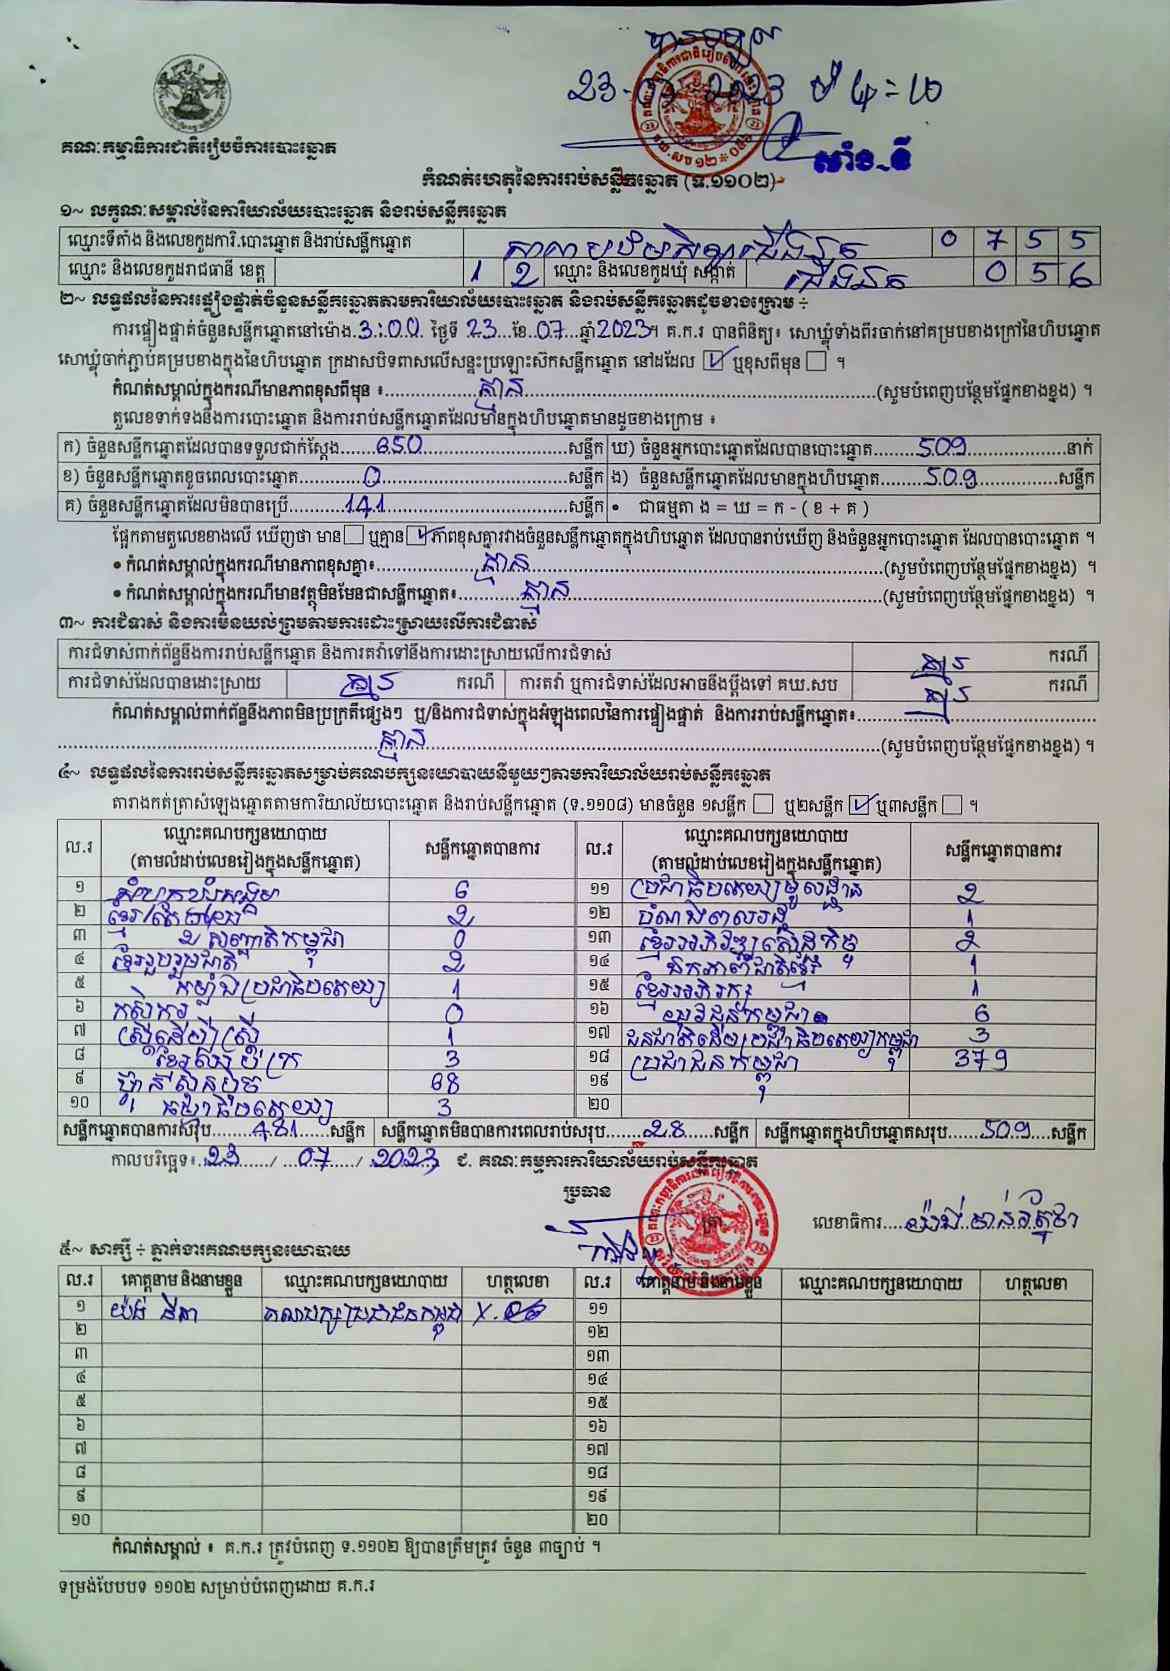 បានទទួល
23-07-2023 ម៉ 4:10
សាំង.ឌី
គណៈកម្មាធិការជាតិរៀបចំការបោះឆ្នោត
កំណត់ហេតុនៃការរាប់សន្លឹកឆ្នោត (ទ.១១០២)
១~ លក្ខណៈសម្គាល់នៃការិយាល័យបោះឆ្នោត និងរាប់សន្លឹកឆ្នោត
ឈ្មោះទីតាំង និងលេខកូដការិ.បោះឆ្នោត និងរាប់សន្លឹកឆ្នោត 0 7 5 5
ឈ្មោះ និងលេខកូដរាជធានី ខេត្ត 1 2 ឈ្មោះ និងលេខកូដឃុំ សង្កាត់ ជើងឯក 0 5 6
២~ លទ្ធផលនៃការផ្ទៀងផ្ទាត់ចំនួនសន្លឹកឆ្នោតតាមការិយាល័យបោះឆ្នោត និងរាប់សន្លឹកឆ្នោតដូចខាងក្រោម ÷
ការផ្ទៀងផ្ទាត់ចំនួនសន្លឹកឆ្នោតនៅម៉ោង.3:00 ថ្ងៃទី 23...ខែ.07...ឆ្នាំ2023។ គ.ក.រ បានពិនិត្យ៖ សោឃ្លុំទាំងពីរចាក់នៅគម្របខាងក្រៅនៃហិបឆ្នោត
សោឃ្លុំចាក់ភ្ជាប់គម្របខាងក្នុងនៃហិបឆ្នោត ក្រដាសបិទពាសលើសន្ទះប្រឡោះស៊កសន្លឹកឆ្នោត នៅដដែល ☑ ឬខុសពីមុន ☐ ។
កំណត់សម្គាល់ក្នុងករណីមានភាពខុសពីមុន ៖ គ្មាន (សូមបំពេញបន្ថែមផ្នែកខាងខ្នង) ។
តួលេខទាក់ទងនឹងការបោះឆ្នោត និងការរាប់សន្លឹកឆ្នោតដែលមានក្នុងហិបឆ្នោតមានដូចខាងក្រោម ៖
ក) ចំនួនសន្លឹកឆ្នោតដែលបានទទួលជាក់ស្តែង 650 សន្លឹក ឃ) ចំនួនអ្នកបោះឆ្នោតដែលបានបោះឆ្នោត 509 នាក់
ខ) ចំនួនសន្លឹកឆ្នោតខូចពេលបោះឆ្នោត 0 សន្លឹក ង) ចំនួនសន្លឹកឆ្នោតដែលមានក្នុងហិបឆ្នោត 509 សន្លឹក
គ) ចំនួនសន្លឹកឆ្នោតដែលមិនបានប្រើ 141 សន្លឹក • ជាធម្មតា ង = ឃ = ក - ( ខ + គ )
ផ្អែកតាមតួលេខខាងលើ ឃើញថា មាន ☐ ឬគ្មាន ☑ ភាពខុសគ្នារវាងចំនួនសន្លឹកឆ្នោតក្នុងហិបឆ្នោត ដែលបានរាប់ឃើញ និងចំនួនអ្នកបោះឆ្នោត ដែលបានបោះឆ្នោត ។
• កំណត់សម្គាល់ក្នុងករណីមានភាពខុសគ្នា៖ គ្មាន (សូមបំពេញបន្ថែមផ្នែកខាងខ្នង) ។
• កំណត់សម្គាល់ក្នុងករណីមានវត្ថុមិនមែនជាសន្លឹកឆ្នោត៖ គ្មាន (សូមបំពេញបន្ថែមផ្នែកខាងខ្នង) ។
៣~ ការជំទាស់ និងការមិនយល់ព្រមតាមការដោះស្រាយលើការជំទាស់
ការជំទាស់ពាក់ព័ន្ធនឹងការរាប់សន្លឹកឆ្នោត និងការតវ៉ាទៅនឹងការដោះស្រាយលើការជំទាស់ គ្មាន ករណី
ការជំទាស់ដែលបានដោះស្រាយ គ្មាន ករណី ការតវ៉ា ឬការជំទាស់ដែលអាចនឹងប្តឹងទៅ គឃ.សប គ្មាន ករណី
កំណត់សម្គាល់ពាក់ព័ន្ធនឹងភាពមិនប្រក្រតីផ្សេងៗ ឬ/និងការជំទាស់ក្នុងអំឡុងពេលនៃការផ្ទៀងផ្ទាត់ និងការរាប់សន្លឹកឆ្នោត៖
គ្មាន (សូមបំពេញបន្ថែមផ្នែកខាងខ្នង) ។
៤~ លទ្ធផលនៃការរាប់សន្លឹកឆ្នោតសម្រាប់គណបក្សនយោបាយនីមួយៗតាមការិយាល័យរាប់សន្លឹកឆ្នោត
តារាងកត់ត្រាសំឡេងឆ្នោតតាមការិយាល័យបោះឆ្នោត និងរាប់សន្លឹកឆ្នោត (ទ.១១០៨) មានចំនួន ១សន្លឹក ☐ ឬ២សន្លឹក ☑ ឬ៣សន្លឹក ☐ ។
ល.រ ឈ្មោះគណបក្សនយោបាយ (តាមលំដាប់លេខរៀងក្នុងសន្លឹកឆ្នោត) សន្លឹកឆ្នោតបានការ ល.រ ឈ្មោះគណបក្សនយោបាយ (តាមលំដាប់លេខរៀងក្នុងសន្លឹកឆ្នោត) សន្លឹកឆ្នោតបានការ
១ សំបុកឃ្មុំសង្គម 6 ១១ ប្រជាធិបតេយ្យមូលដ្ឋាន 2
២ ខ្មែរ 2 ១២ ១
៣ សញ្ជាតិកម្ពុជា 0 ១៣ ខ្មែរអភិវឌ្ឍសេដ្ឋកិច្ច 2
៤ ខ្មែររួបរួមជាតិ 2 ១៤ ឯកភាពជាតិខ្មែរ 1
៥ កម្លាំងប្រជាធិបតេយ្យ 1 ១៥ ខ្មែរអភិរក្ស 1
៦ កសិករ 0 ១៦ យុវជនកម្ពុជា 6
៧ ស្ត្រីដើម្បីស្ត្រី 1 ១៧ ជនជាតិដើមប្រជាធិបតេយ្យកម្ពុជា 3
៨ ខ្មែរឈប់ក្រ 3 ១៨ ប្រជាជនកម្ពុជា 379
៩ ហ្វ៊ុនស៊ិនប៉ិច 68 ១៩
១០ ធម្មាធិបតេយ្យ 3 ២០
សន្លឹកឆ្នោតបានការសរុប 481 សន្លឹក សន្លឹកឆ្នោតមិនបានការពេលរាប់សរុប 28 សន្លឹក សន្លឹកឆ្នោតក្នុងហិបឆ្នោតសរុប 509 សន្លឹក
កាលបរិច្ឆេទ៖ 23 / 07 / 2023 ជ. គណៈកម្មការការិយាល័យរាប់សន្លឹកឆ្នោត
ប្រធាន
ត្រា
លេខាធិការ
៥~ សាក្សី ÷ ភ្នាក់ងារគណបក្សនយោបាយ
ល.រ គោត្តនាម និងនាមខ្លួន ឈ្មោះគណបក្សនយោបាយ ហត្ថលេខា ល.រ គោត្តនាម និងនាមខ្លួន ឈ្មោះគណបក្សនយោបាយ ហត្ថលេខា
១ គណបក្សប្រជាជនកម្ពុជា ១១
២ ១២
៣ ១៣
៤ ១៤
៥ ១៥
៦ ១៦
៧ ១៧
៨ ១៨
៩ ១៩
១០ ២០
កំណត់សម្គាល់ ៖ គ.ក.រ ត្រូវបំពេញ ទ.១១០២ ឱ្យបានត្រឹមត្រូវ ចំនួន ៣ច្បាប់ ។
ទម្រង់បែបបទ ១១០២ សម្រាប់បំពេញដោយ គ.ក.រ